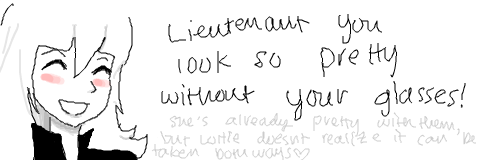 Lieutenant you
look so pretty
without your glasses!
she's already pretty with them,
but lottie doesnt realize it can be
taken both ways♡